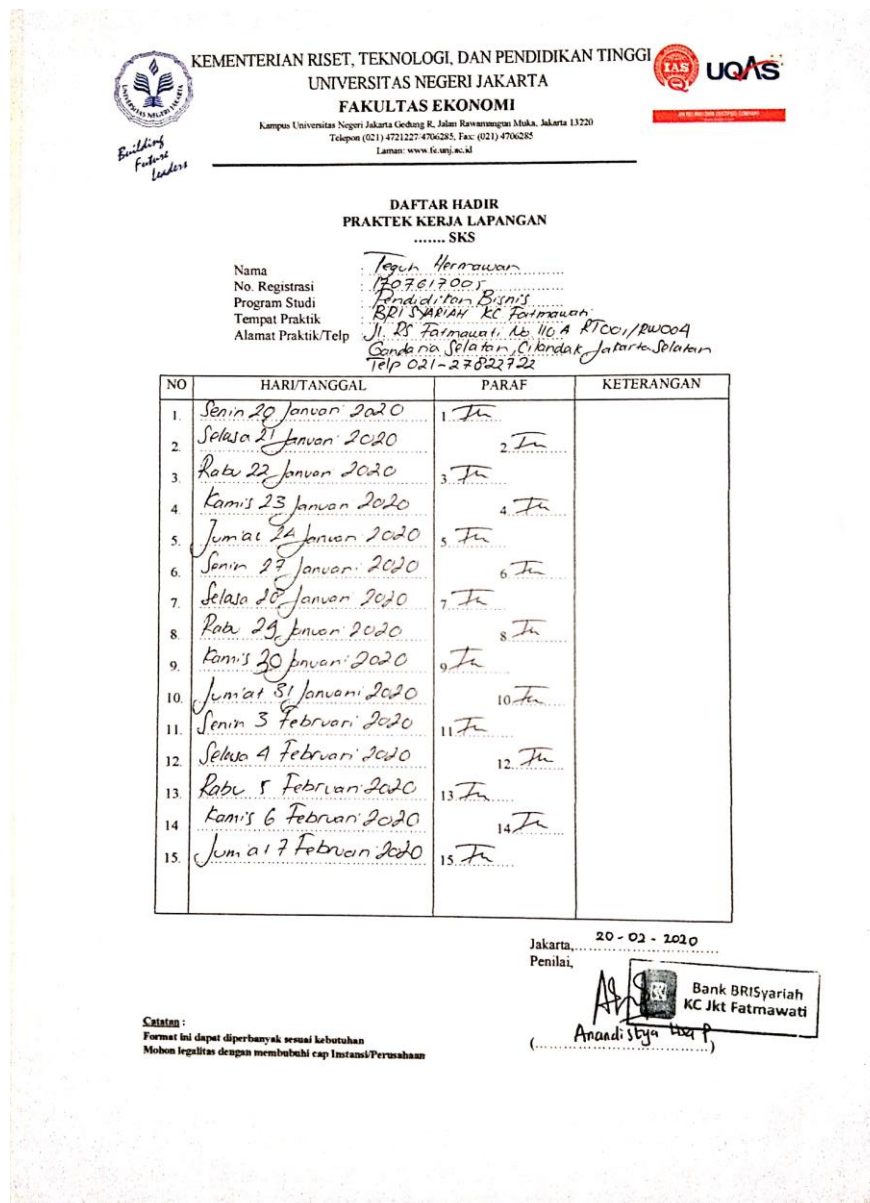 KEMENTERIAN RISET, TEKNOLOGI, DAN PENDIDIKAN TINGGI
UNIVERSITAS NEGERI JAKARTA
FAKULTAS EKONOMI
Kampus Universitas Negeri Jakarta Gedung R, Jalan Rawamangun Muka, Jakarta 13220
Telepon (021) 4721227/4706285, Fax: (021) 4706285
Laman: www.fe.unj.ac.id
UNIVERSITAS NEGERI JAKARTA
Building
Future
Leaders
IAS
UQAS
DAFTAR HADIR
PRAKTEK KERJA LAPANGAN
....... SKS
Nama : Teguh Hermawan
No. Registrasi : 1707617005
Program Studi : Pendidikan Bisnis
Tempat Praktik : BRI SYARIAH KC Fatmawati
Alamat Praktik/Telp : Jl. RS Fatmawati No 11C A RT001/RW004
Gandaria Selatan, Cilandak, Jakarta Selatan
Telp 021-27822722
NO HARI/TANGGAL PARAF KETERANGAN
1. Senin 20 Januari 2020 1.
2. Selasa 21 Januari 2020 2.
3. Rabu 22 Januari 2020 3.
4. Kamis 23 Januari 2020 4.
5. Jum'at 24 Januari 2020 5.
6. Senin 27 Januari 2020 6.
7. Selasa 28 Januari 2020 7.
8. Rabu 29 Januari 2020 8.
9. Kamis 30 Januari 2020 9.
10. Jum'at 31 Januari 2020 10.
11. Senin 3 Februari 2020 11.
12. Selasa 4 Februari 2020 12.
13. Rabu 5 Februari 2020 13.
14 Kamis 6 Februari 2020 14.
15. Jum'at 7 Februari 2020 15.
Jakarta, 20-02-2020
Penilai,
Bank BRISyariah
KC Jkt Fatmawati
(Anandistya P)
Catatan :
Format ini dapat diperbanyak sesuai kebutuhan
Mohon legalitas dengan membubuhi cap Instansi/Perusahaan